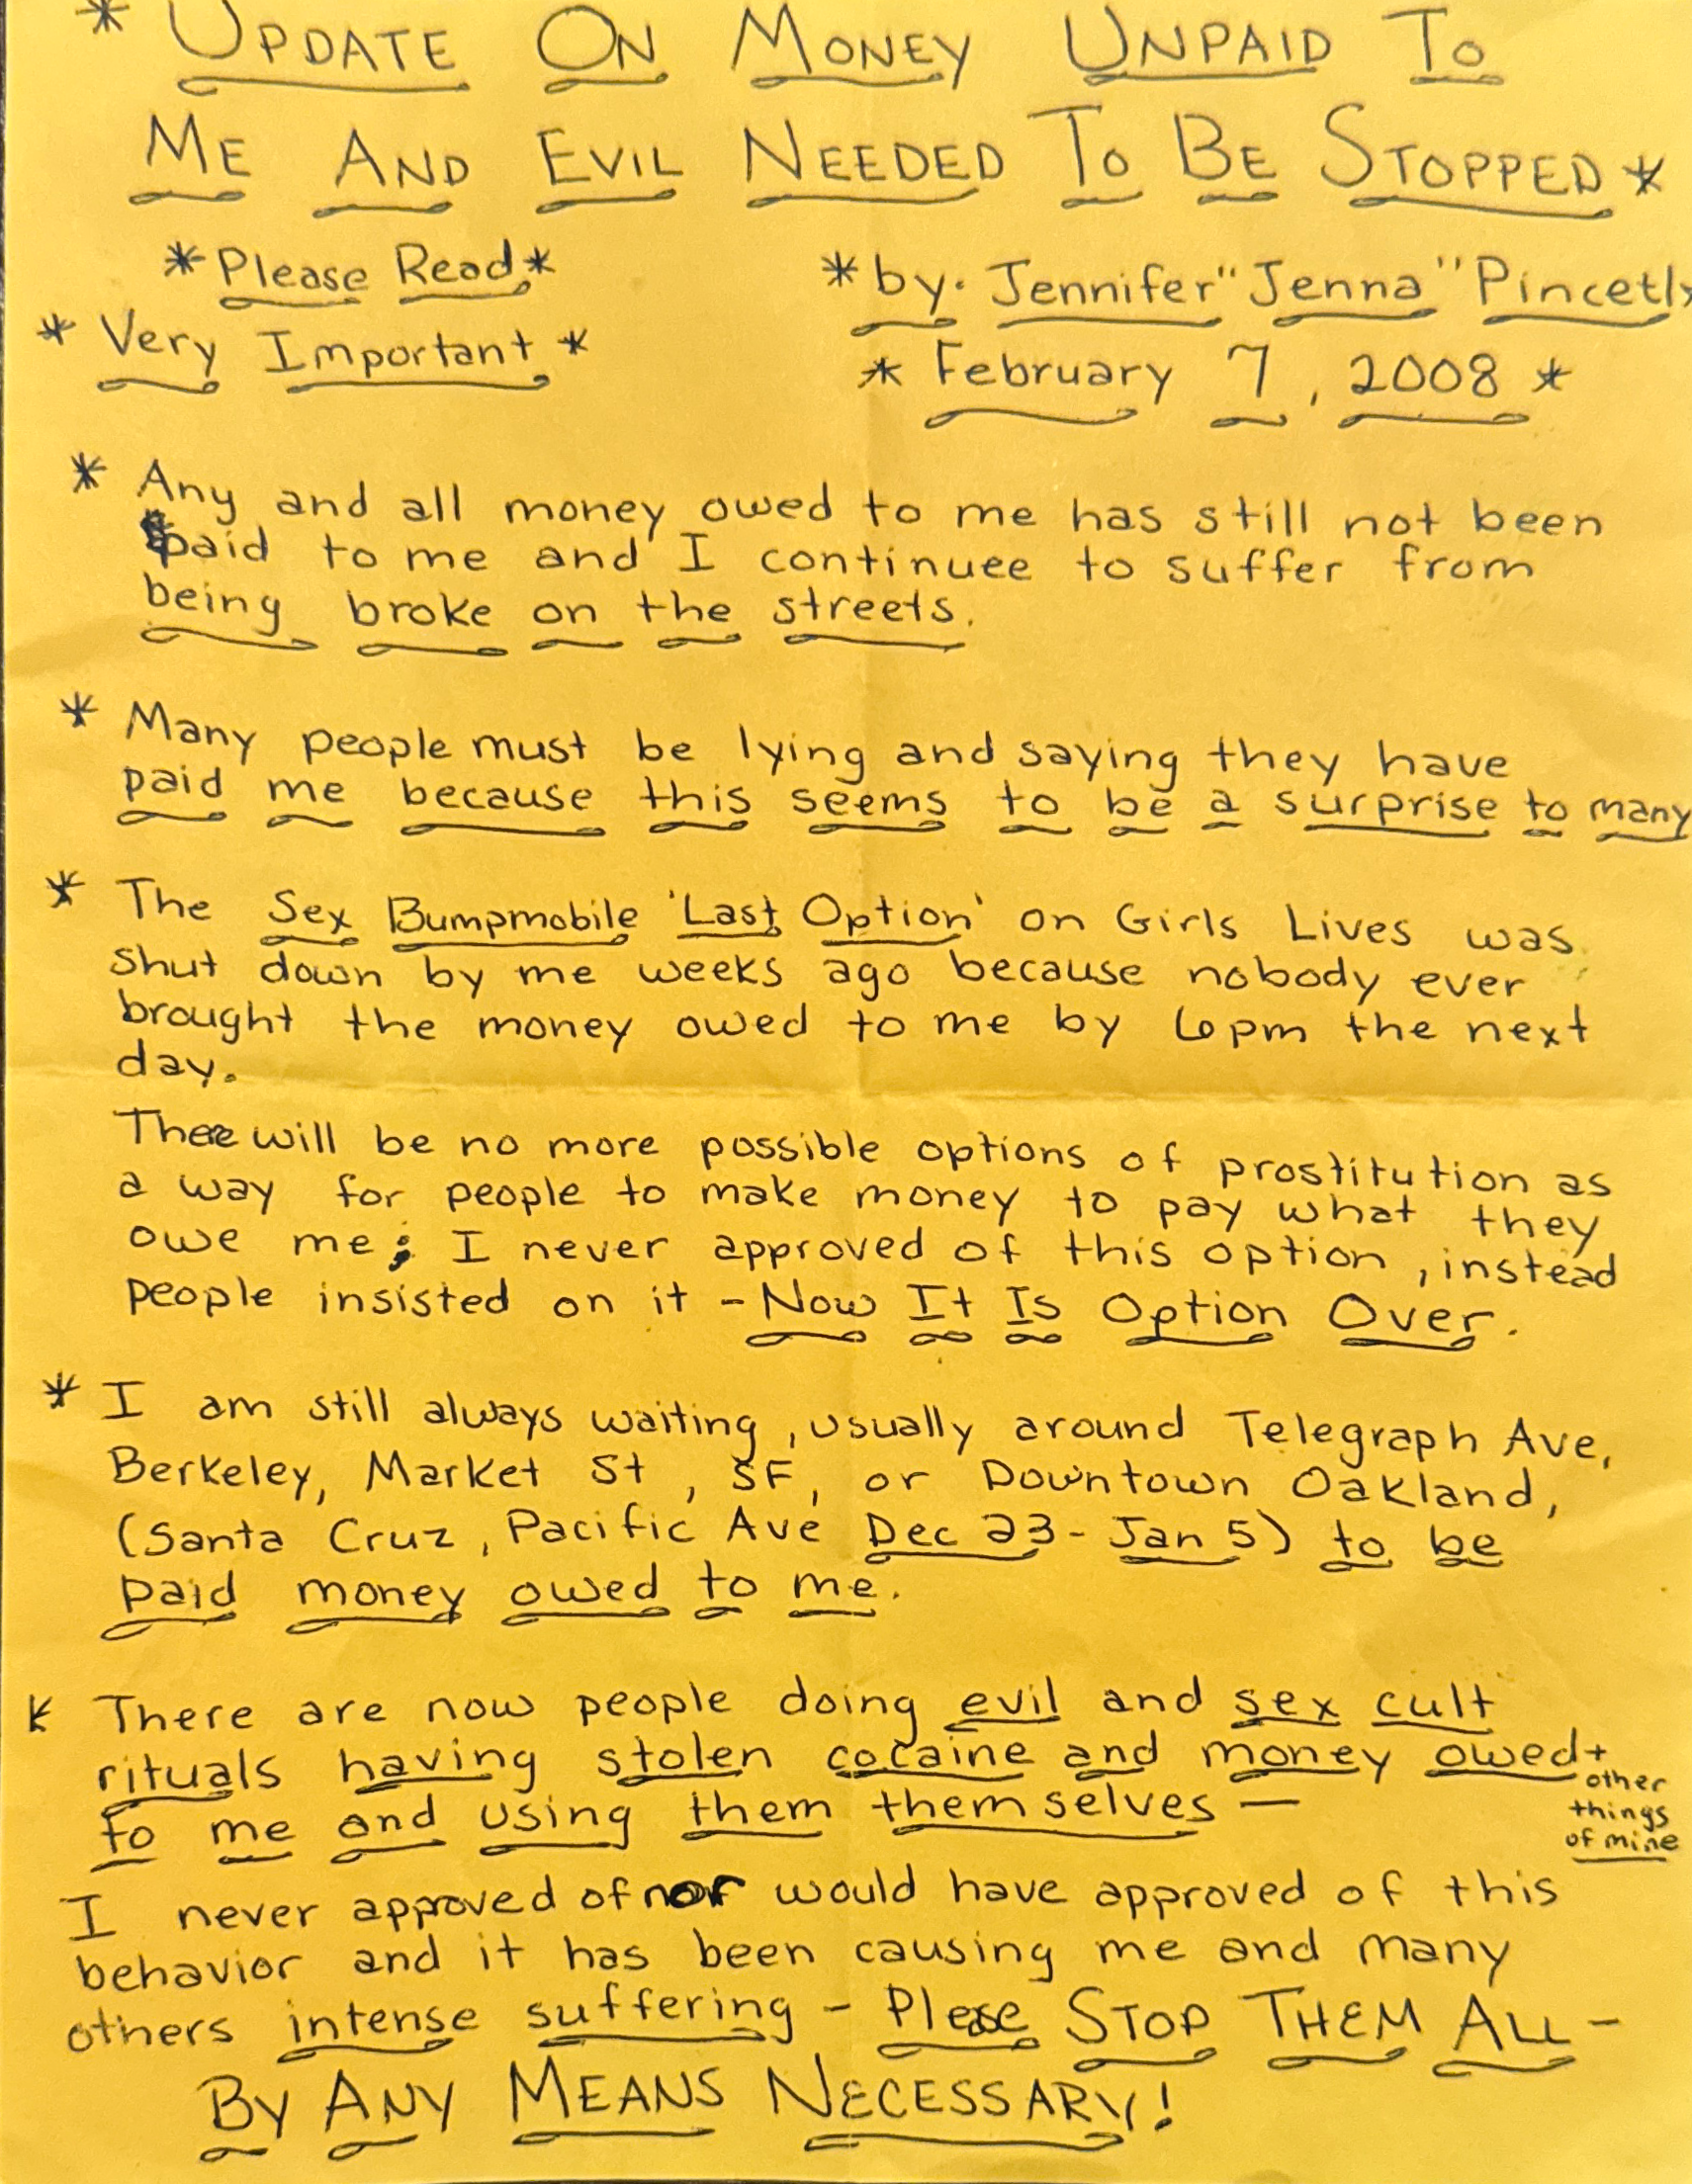 * UPDATE ON MONEY UNPAID TO
ME AND EVIL NEEDED TO BE STOPPED *
*Please Read*
* Very Important *
*by: Jennifer "Jenna" Pincetl*
* February 7, 2008 *
* Any and all money owed to me has still not been
paid to me and I continuee to suffer from
being broke on the streets.
* Many people must be lying and saying they have
paid me because this seems to be a surprise to many
* The Sex Bumpmobile 'Last Option' on Girls Lives was
shut down by me weeks ago because nobody ever
brought the money owed to me by 6pm the next
day.
There will be no more possible options of prostitution as
a way for people to make money to pay what they
owe me; I never approved of this option, instead
people insisted on it - Now It Is Option Over.
* I am still always waiting, usually around Telegraph Ave,
Berkeley, Market St, SF, or Downtown Oakland,
(Santa Cruz, Pacific Ave Dec 23 - Jan 5) to be
paid money owed to me.
* There are now people doing evil and sex cult
rituals having stolen cocaine and money owed +
other
things
of mine
to me and using them themselves —
I never approved of nor would have approved of this
behavior and it has been causing me and many
others intense suffering - Please STOP THEM ALL -
BY ANY MEANS NECESSARY!